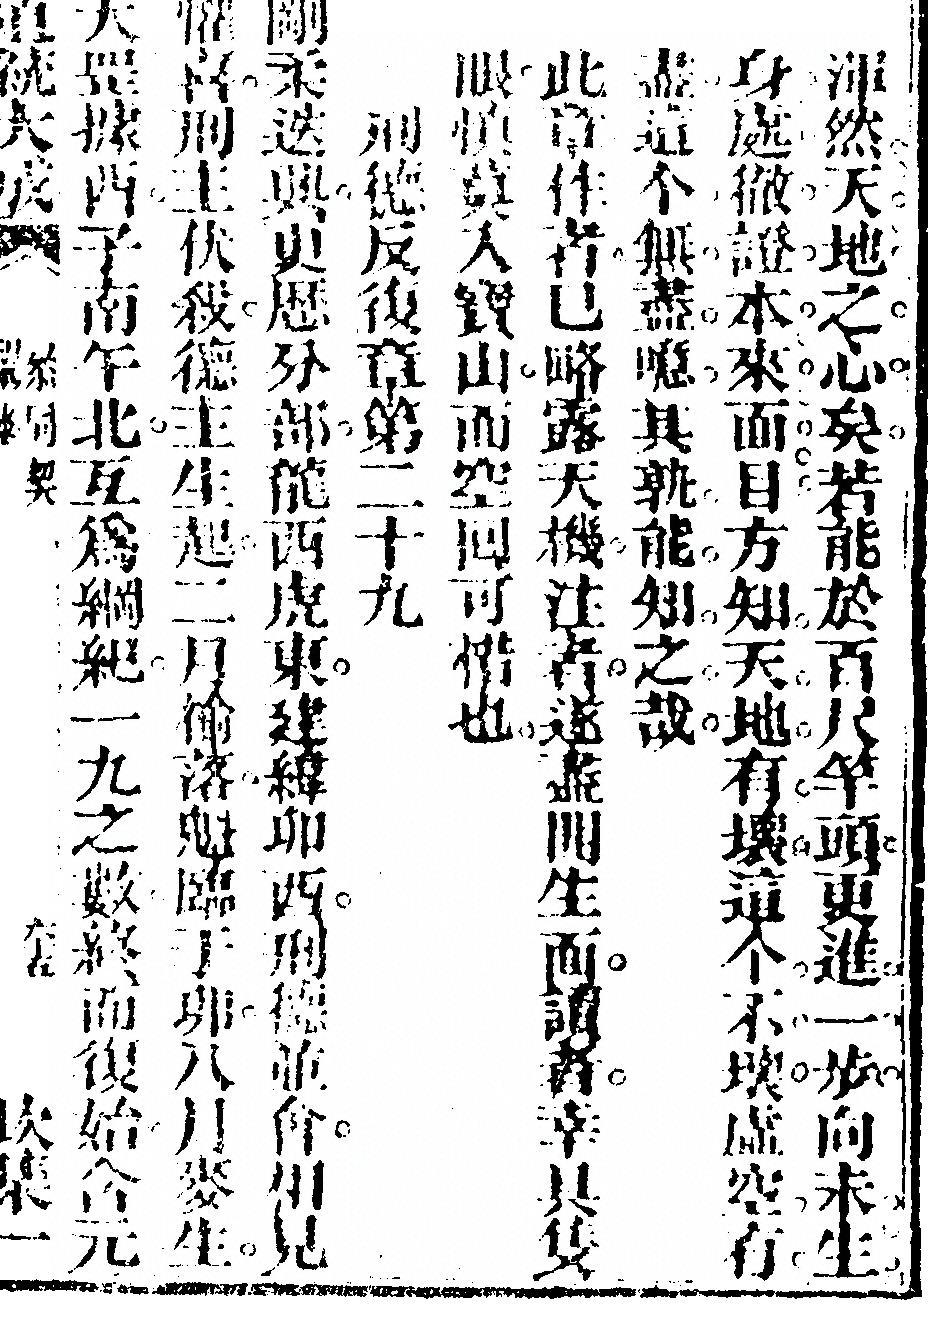 渾然天地之心矣若能於百尺竿頭更進一步向未生
身處徹證本來面目方知天地有壞這个不壞虛空有
盡這个無盡噫其孰能知之哉
此章作者已略露天機注者遂盡開生面讀者幸具隻
眼慎莫入寶山而空回可惜也
刑德反復章第二十九
剛柔迭興更歷分部龍西虎東建緯卯酉刑德並會相見
懽喜刑主伏殺德主生起二月榆落魁臨于卯八月麥生
天罡據酉子南午北互為綱紀一九之數終而復始含元